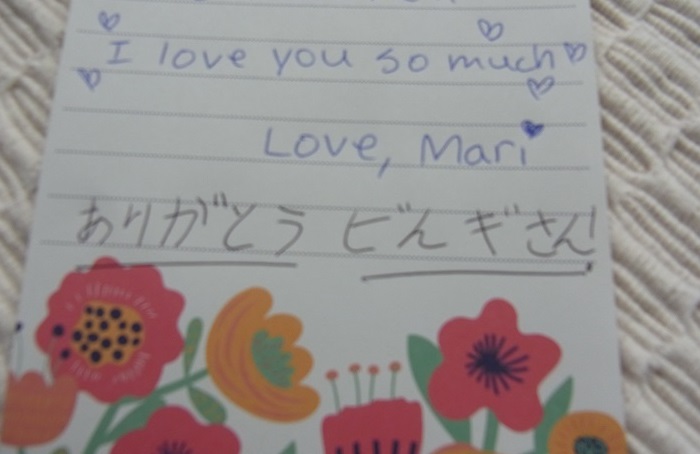 I love you so much
Love, Mari
ありがとう ビんギさん!